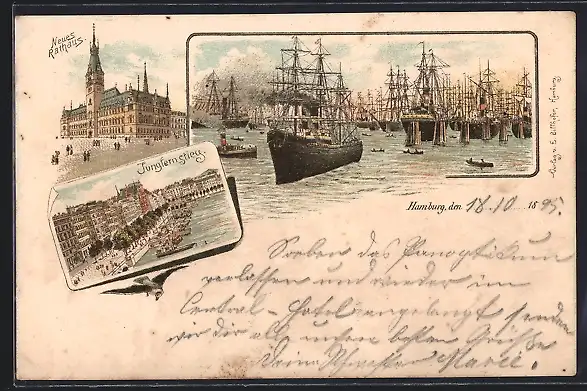 Neues
Rathaus.
Jungfernstieg
Verlag v. Hamburg
Hamburg, den 18.10. 1895.
Soeben das Panoptikum
verlassen und wieder im
Central-Hotel angelangt senden
wir dir all unsere besten Grüße
Deine Schwester Marie.